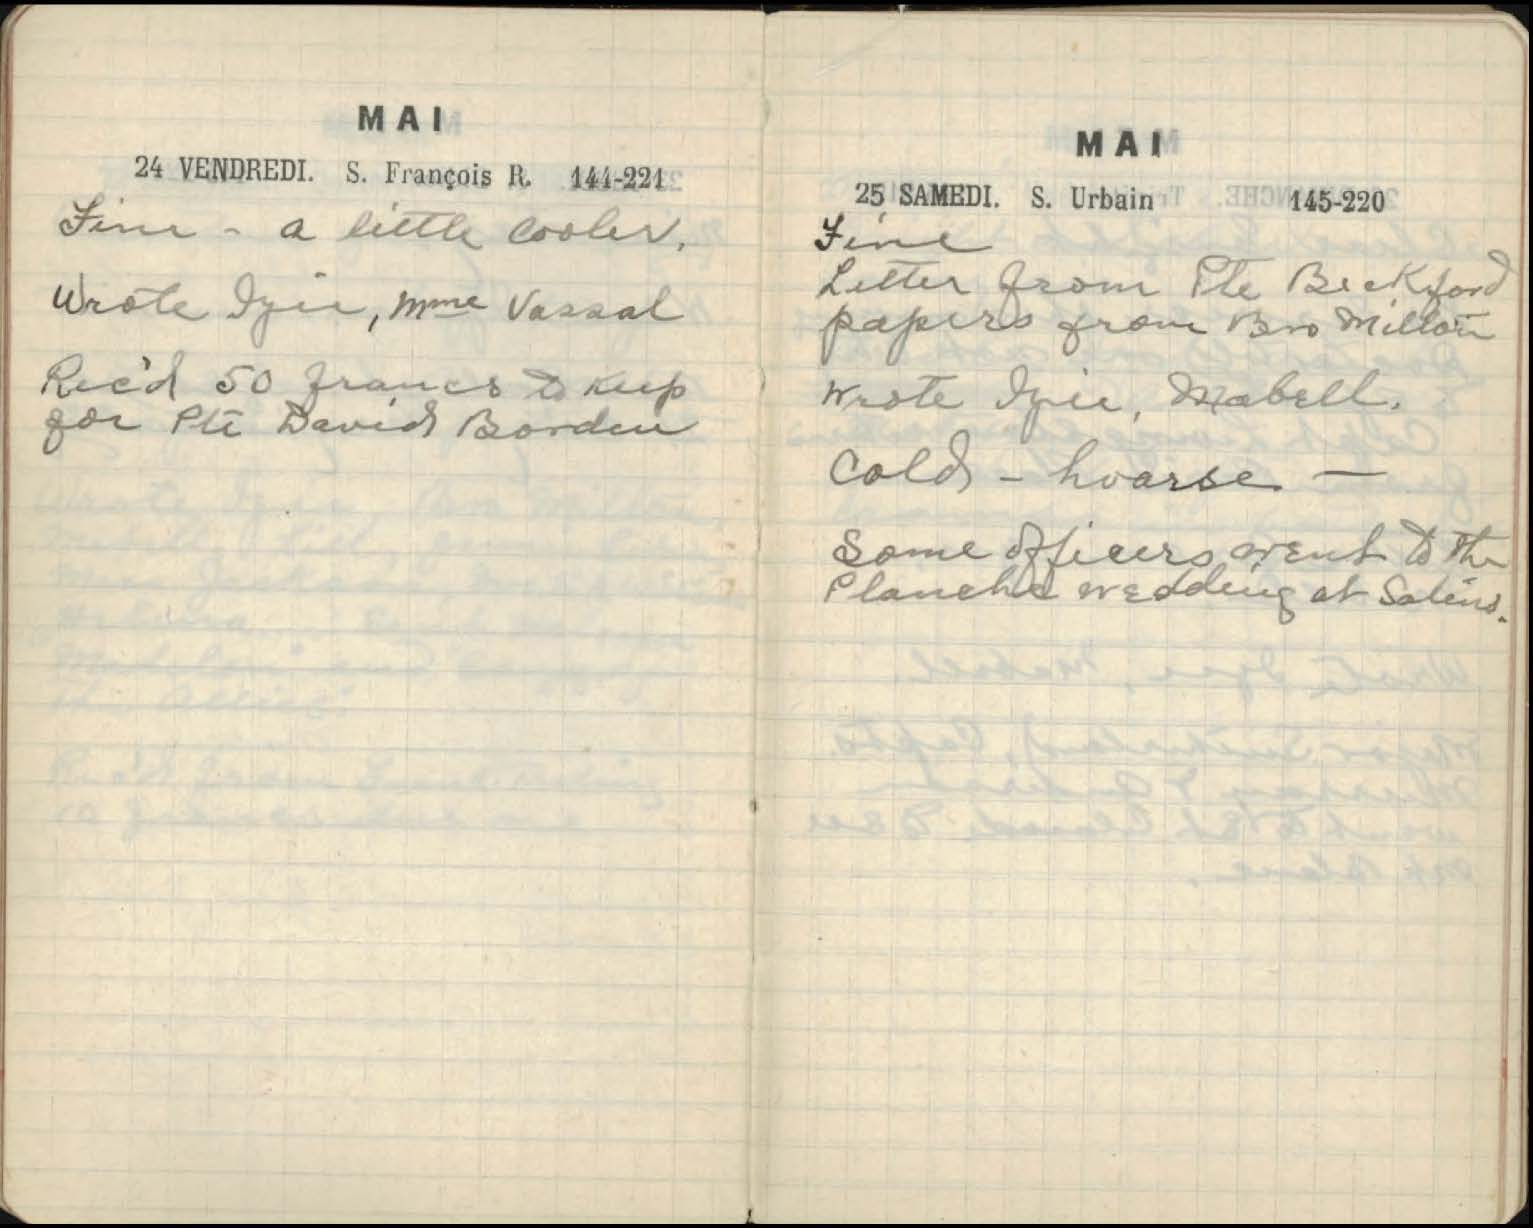 MAI
24 VENDREDI. S. François R. 144-221
Fine - a little cooler.
Wrote Izie, Mme Vassal
Rec'd 50 francs to keep
for Pte David Borden
MAI
25 SAMEDI. S. Urbain 145-220
Fine
Letter from Pte Beckford
papers from Bro Milton
Wrote Izie, Mabell.
Cold - hoarse -
Some officers went to the
Planche wedding at Salins.